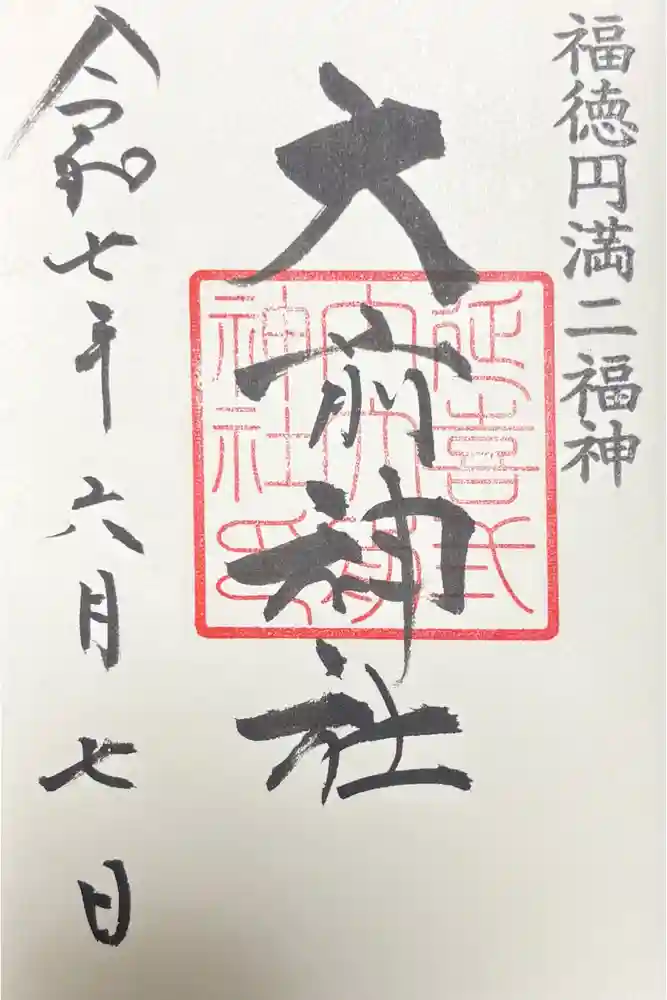 福徳円満二福神
大前神社
延喜式
内大前
神社印
令和七年六月七日